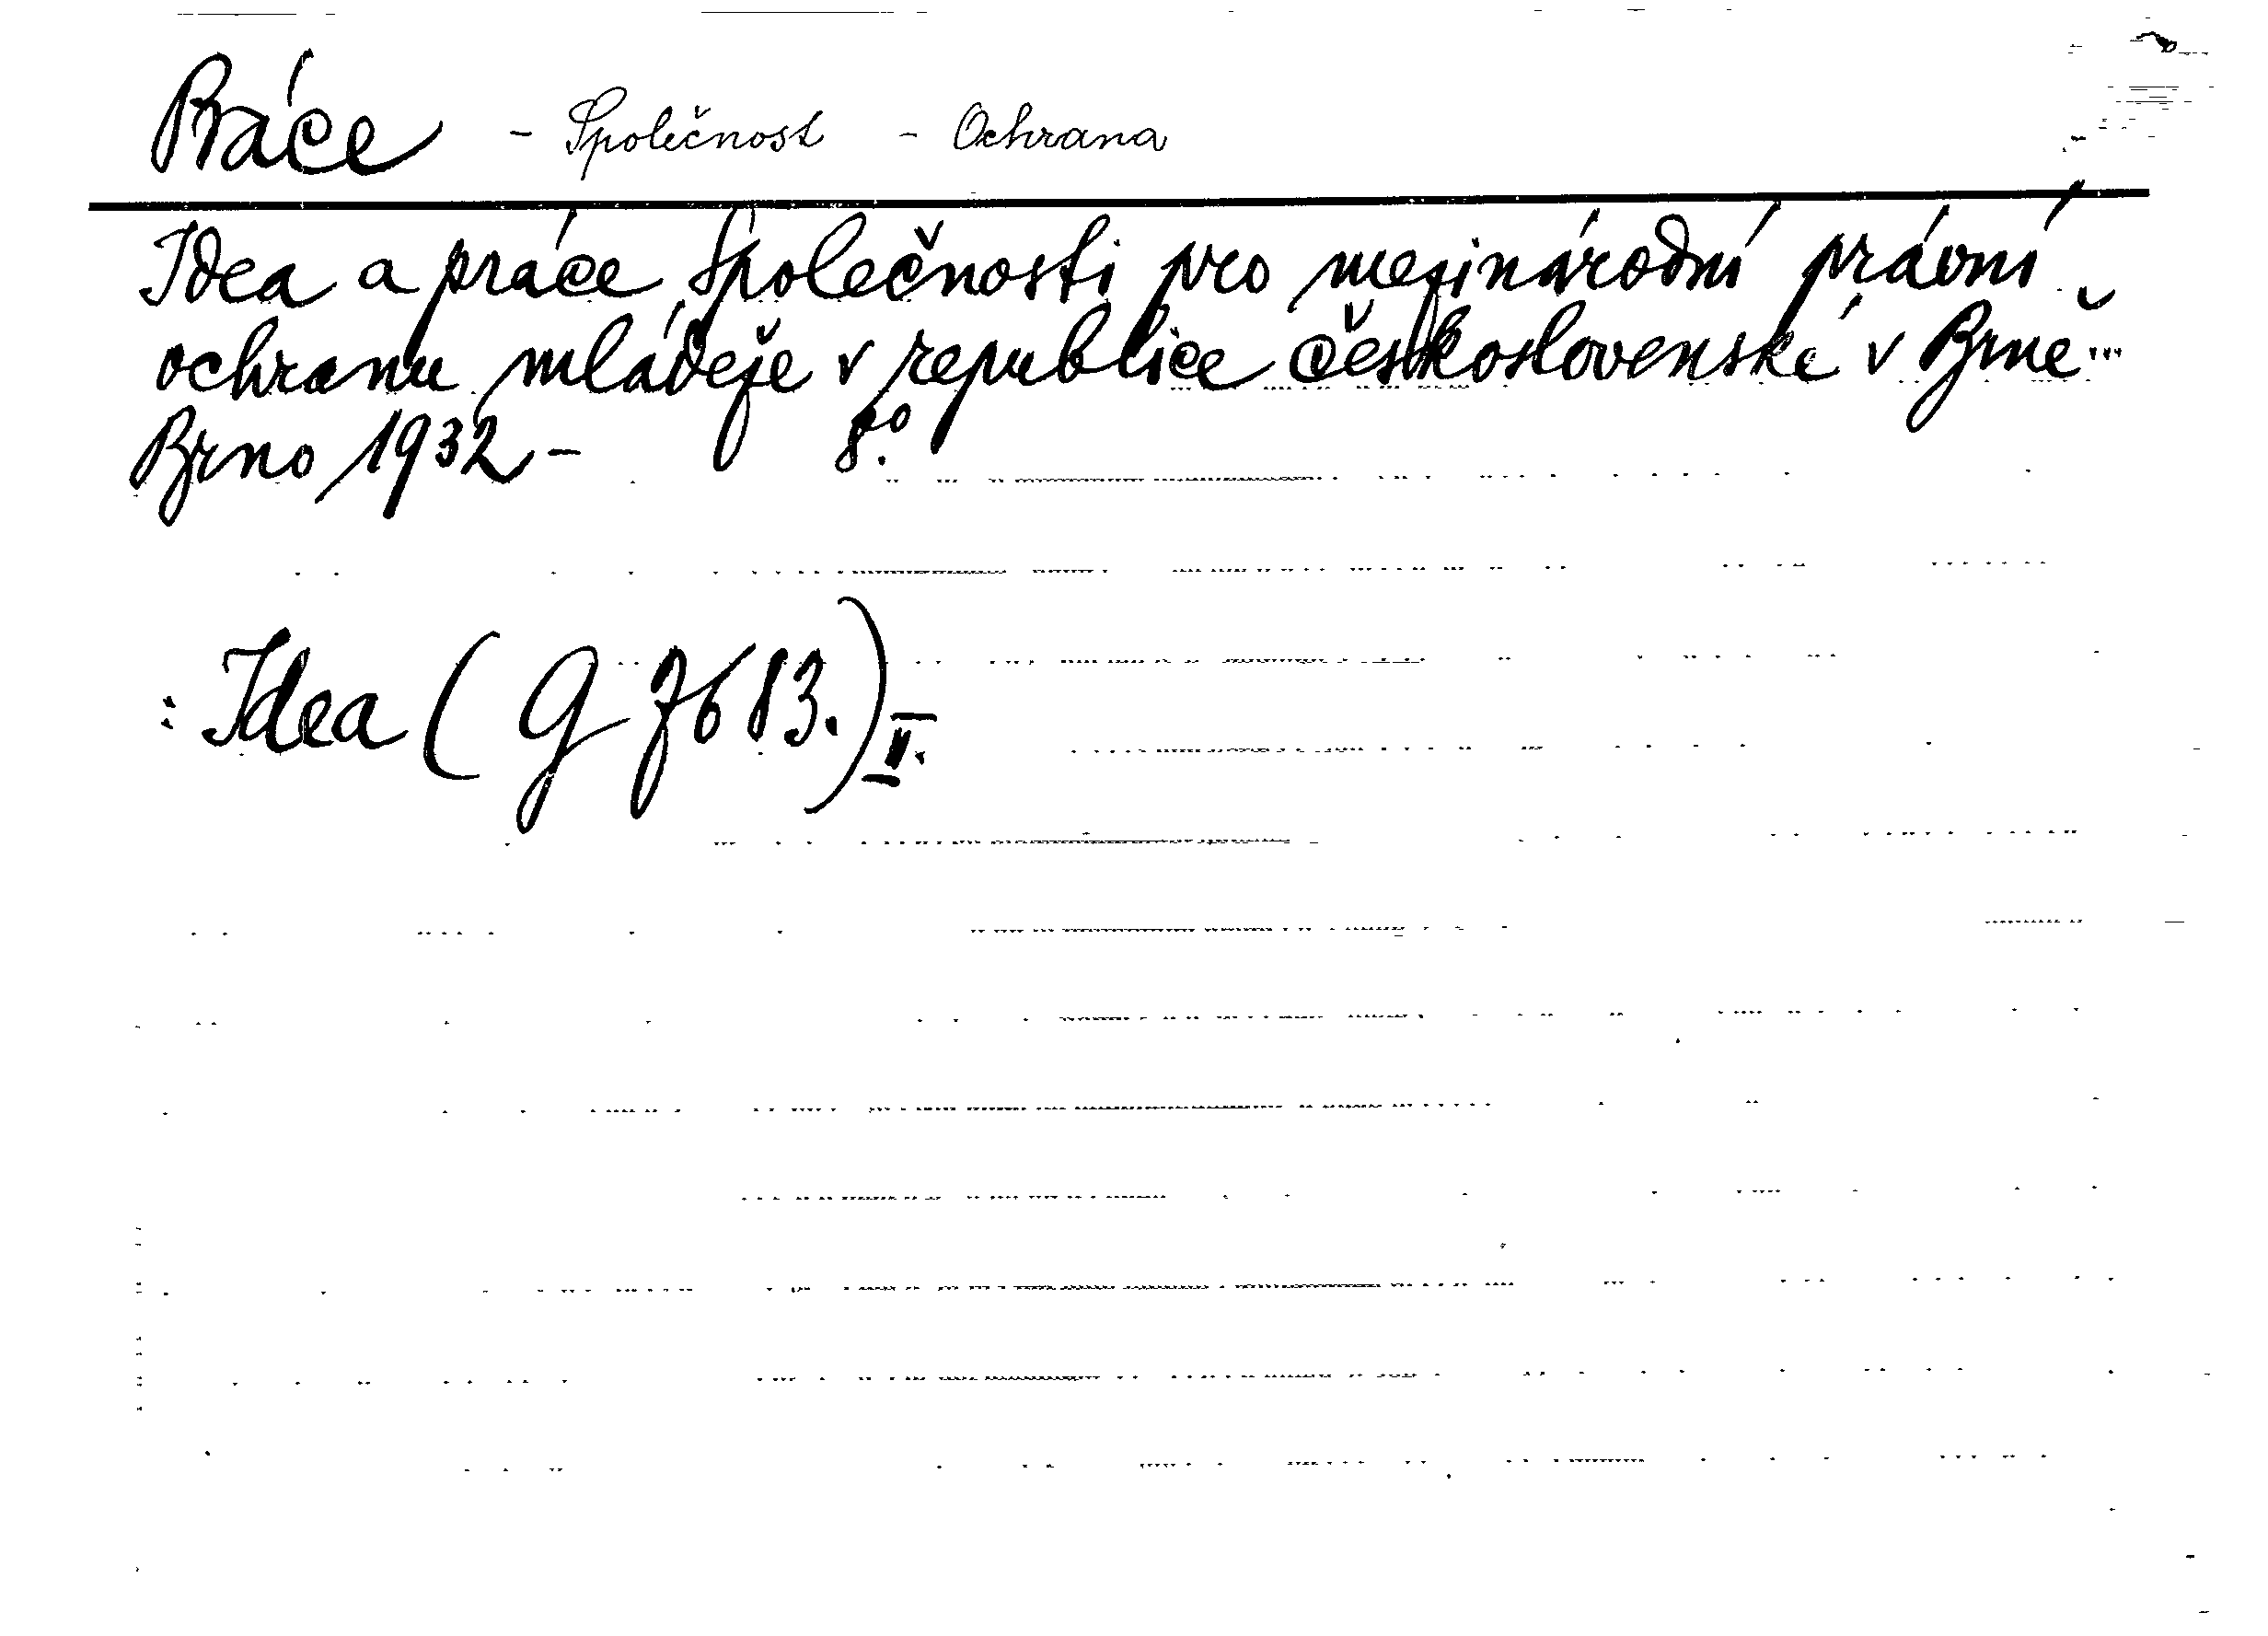 Práce - Společnost - Ochrana
Idea a práce Společnosti pro mezinárodní právní
ochranu mládeže v republice československé v Brně...
Brno 1932 - 8°.
: Idea (G 7683.) II.